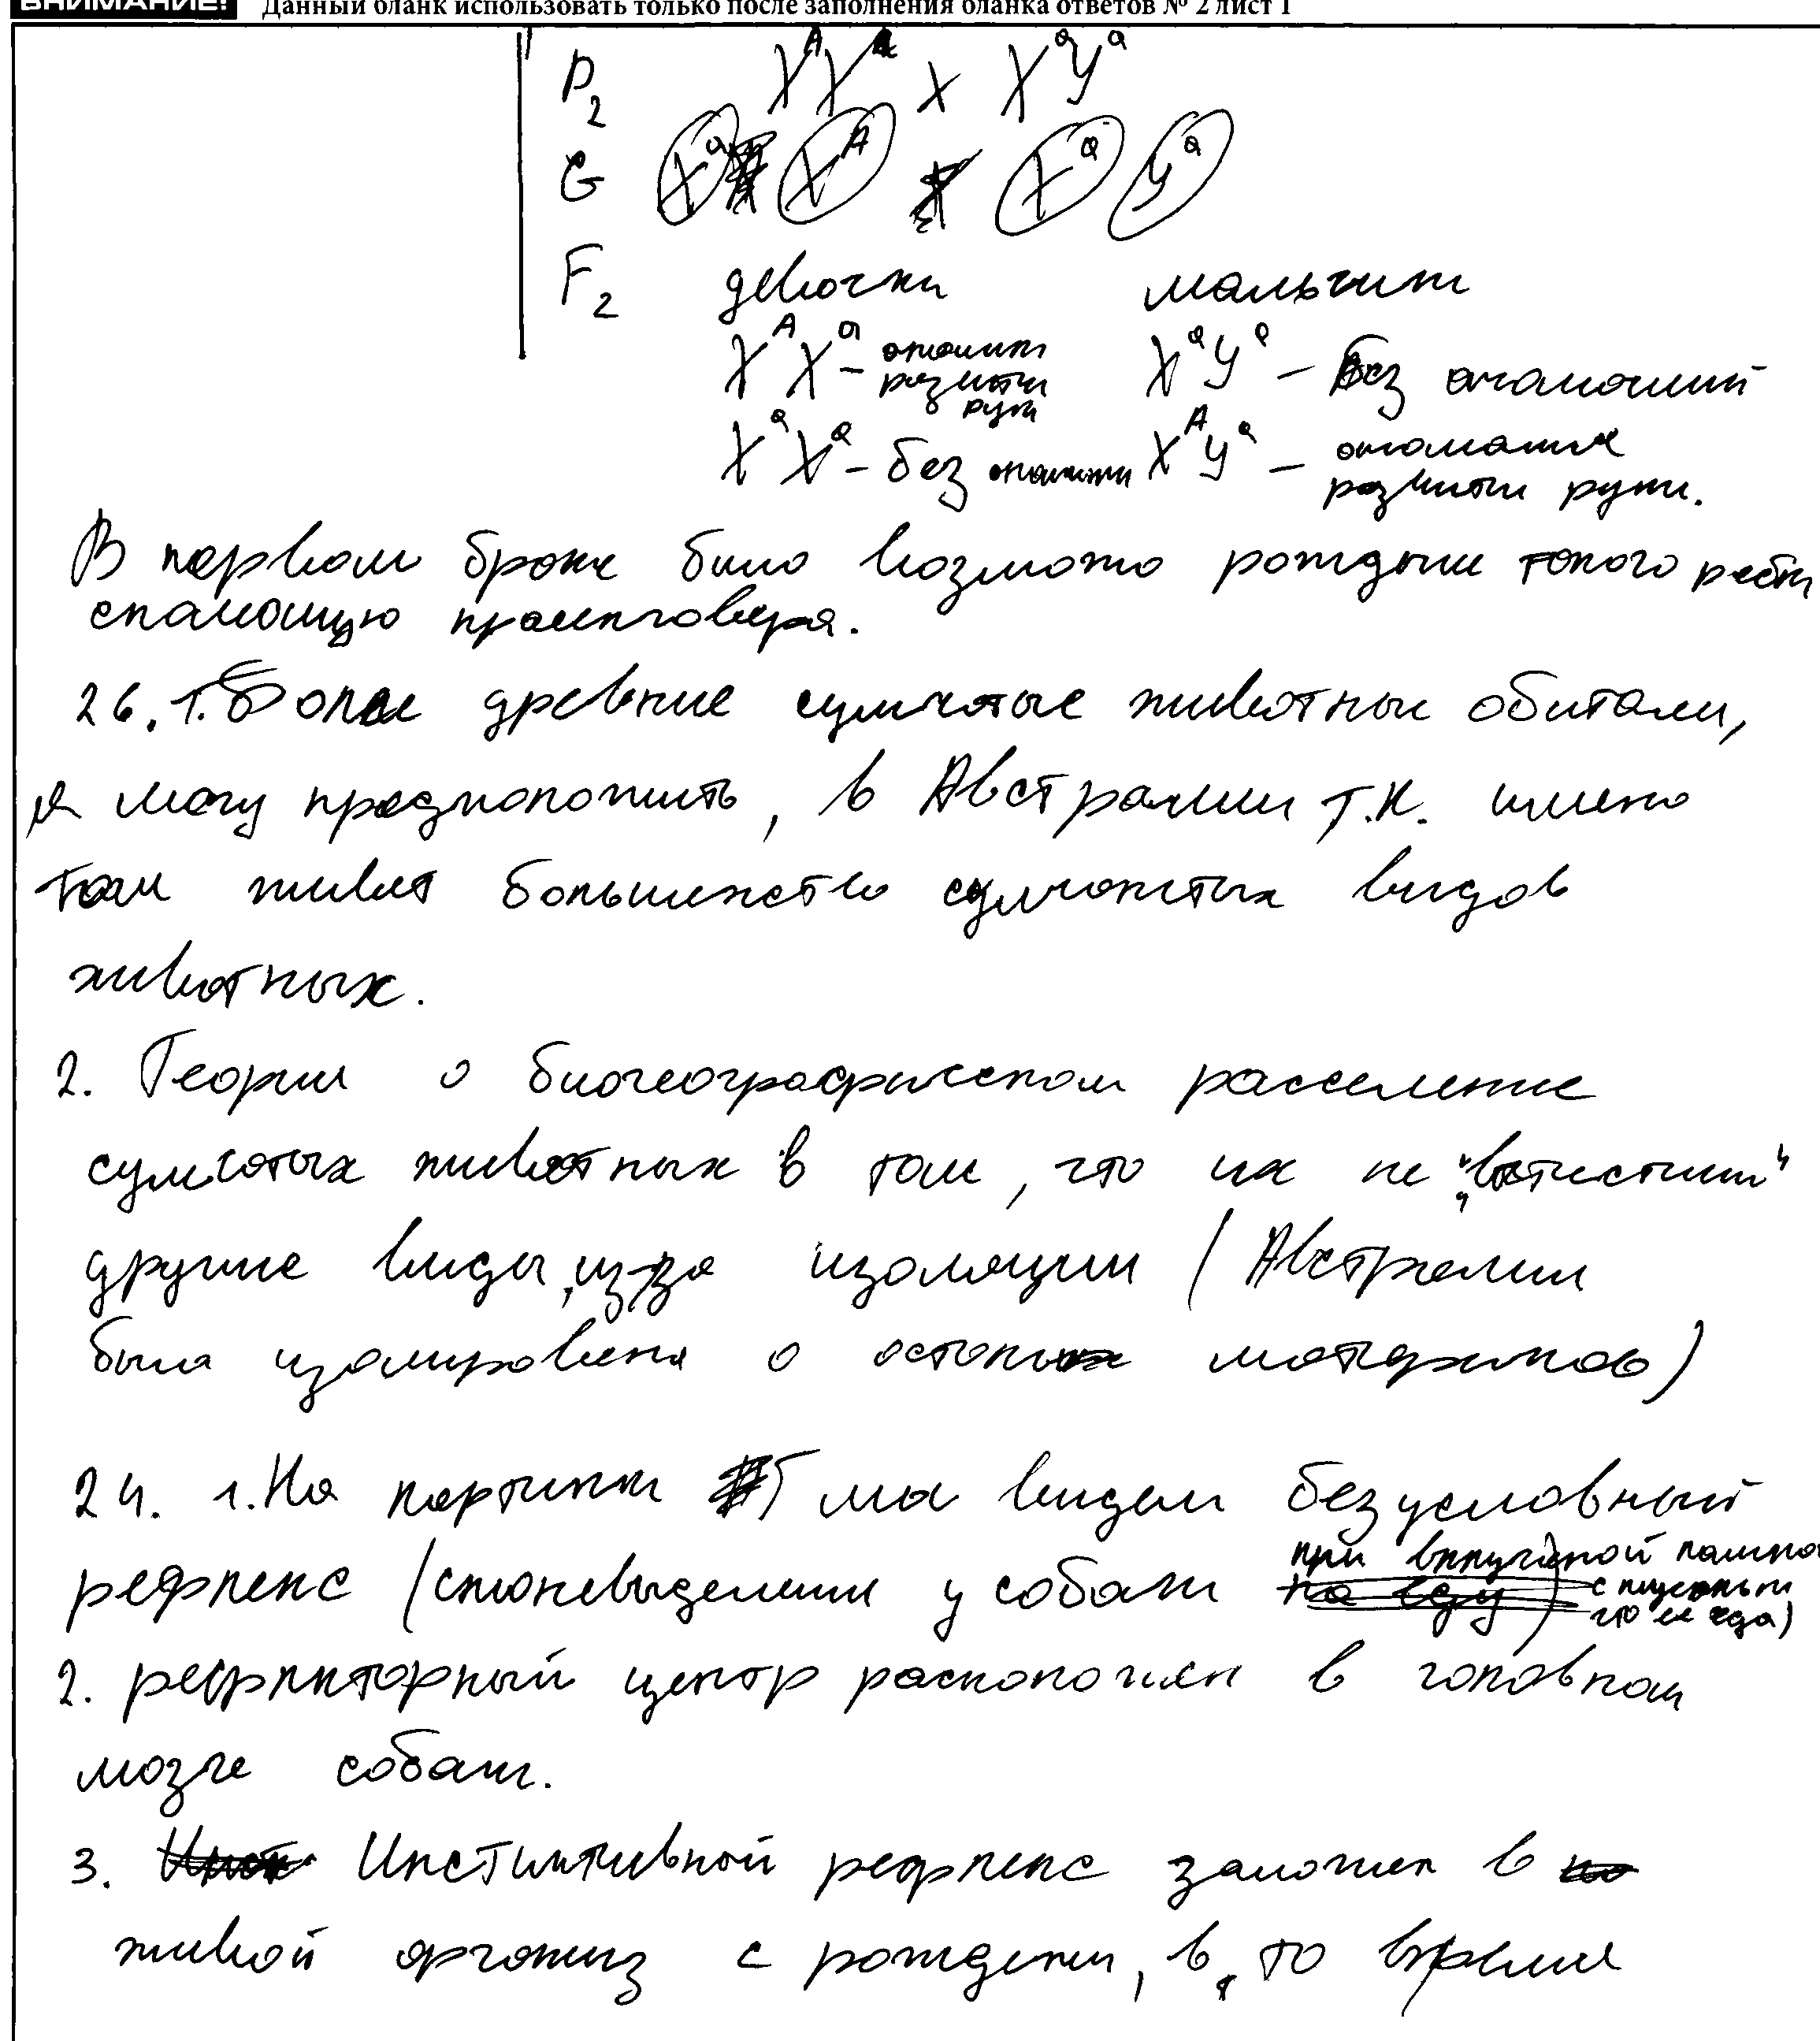 ВНИМАНИЕ! Данный бланк использовать только после заполнения бланка ответов № 2 лист 1
P₂ XᴬXᵃ x XᵃYᵃ
G Xᵃ Xᴬ Xᵃ Yᵃ
F₂ девочки мальчики
XᴬXᵃ – аномалия развития руки XᵃYᵃ – без аномалий
XᵃXᵃ – без аномалии XᴬYᵃ – аномалия развития руки.
В первом браке было возможо рождение такого ребён
спамощую кроссинговера.
26. 1. Более древние сумчатые животные обитали,
я могу предположить, в Австралии т.к. имено
там живёт большенство сумчатых видов
животных.
2. Теория о биогеографическом расселение
сумчатых животных в том, что их не "вытестили"
другие виды, из-за изоляции (Австралия
была изолирована о осталных материков)
24. 1. На картинки мы видем безусловный
рефлекс (слюневыделении у собаки при включёной лампочки
с мыслями что ее еда)
2. рефлекторный центр расположен в головном
мозге собаки.
3. Инстиктивной рефлекс заложен в
живой организ с рождени, в то время